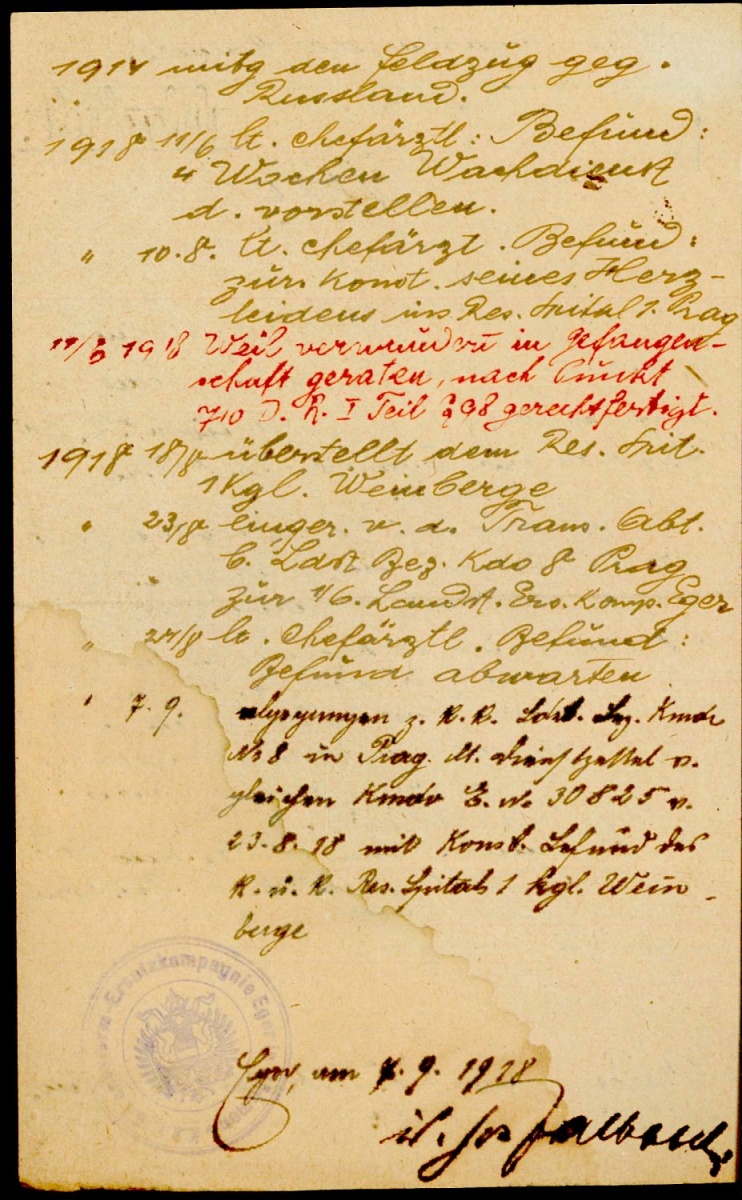 1914 mitg den Feldzug geg.
Russland.
1918 11/6 lt. chefärztl: Befund:
4 Wochen Wachdienst
d. vorstellen.
" 10.8. lt. chefärzt. Befund:
zur. Konst. seines Herz-
leidens ins Res. Spital 1. Prag
1918 Weil verwundet in Gefangen-
schaft geraten, nach Punkt
710 D. R. I Teil § 98 gerechtfertigt.
1918 18/8 überstellt dem Res. Spit.
1 Kgl. Weinberge
" 23/8 einger. v. d. Trans. Abt.
b. Ldst Bez. Kdo 8 Prag
zur 1/6. Landst. Ers. Komp. Eger
" 24/8 lt. chefärztl. Befund:
Befund abwarten
" 7. 9. abgegangen z. k. k. Ldst. Bez. Kmdo
No 8 in Prag lt. Dienstzettel v.
gleichen Kmdo E. No. 30825 v.
23. 8. 18 mit Konst. Befund des
k. u. k. Res. Spitals 1 kgl. Wein-
berge
Ersatzkompagnie Eger
Eger, am 7. 9. 1918